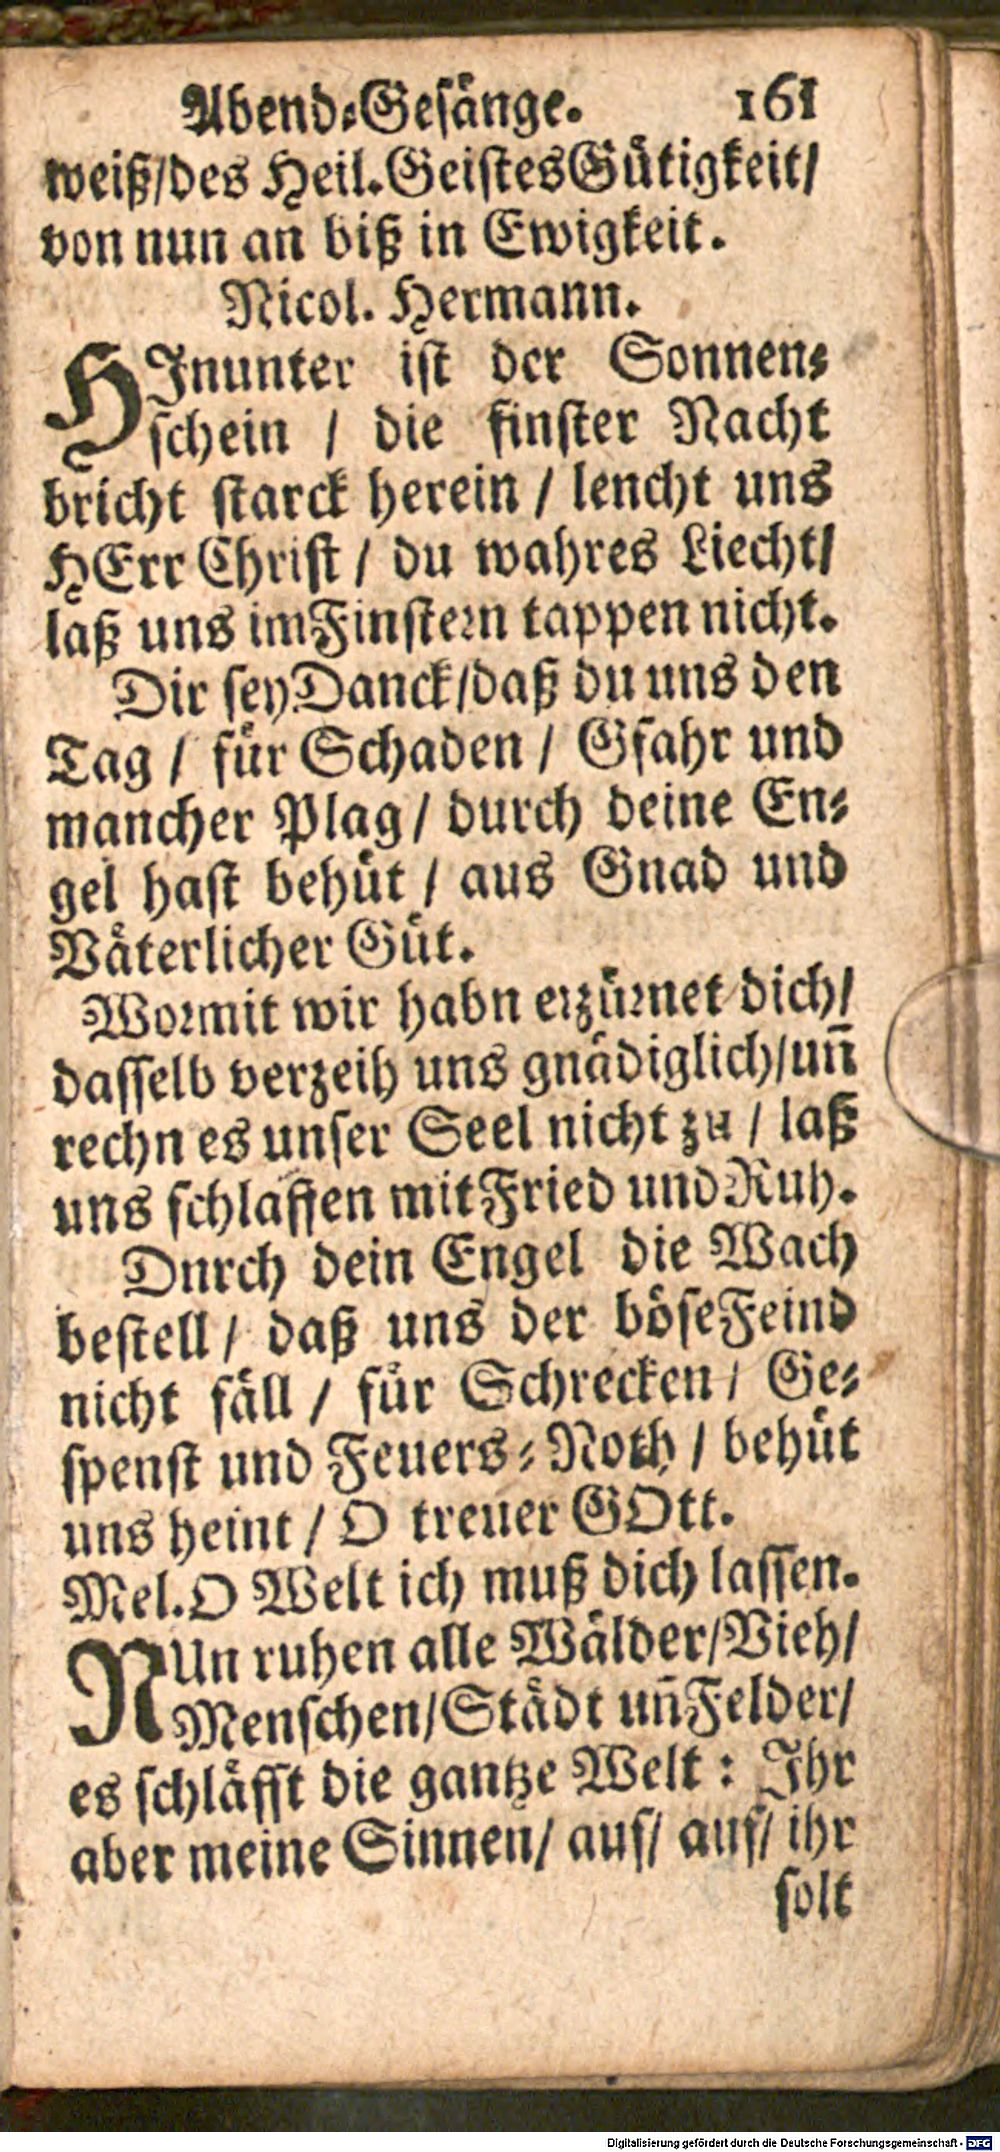 Abend-Gesänge. 161
weiß/des Heil. Geistes Gütigkeit/
von nun an biß in Ewigkeit.
Nicol. Hermann.
HInunter ist der Sonnen-
schein / die finster Nacht
bricht starck herein / lencht uns
HErr Christ / du wahres Liecht/
laß uns im Finstern tappen nicht.
Dir sey Danck/daß du uns den
Tag / für Schaden / Gfahr und
mancher Plag / durch deine En-
gel hast behüt / aus Gnad und
Väterlicher Güt.
Wormit wir habn erzürnet dich/
dasselb verzeih uns gnädiglich/uñ
rechn es unser Seel nicht zu / laß
uns schlaffen mit Fried und Ruh.
Dnrch dein Engel die Wach
bestell / daß uns der böse Feind
nicht fäll / für Schrecken / Ge-
spenst und Feuers-Noth / behüt
uns heint / O treuer GOtt.
Mel. O Welt ich muß dich lassen.
NUn ruhen alle Wälder/Vieh/
Menschen/Städt uñ Felder/
es schläfft die gantze Welt: Ihr
aber meine Sinnen/ auf/ auf/ ihr
solt
Digitalisierung gefördert durch die Deutsche Forschungsgemeinschaft - DFG